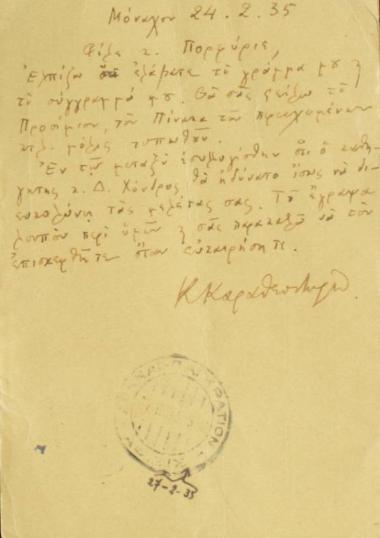 Μόναχον 24.2.35
Φίλε κ. Πορφύριε,
Ἐλπίζω ὅτι ἐλάβατε τὸ γράμμα μου &
τὸ σύγγραμμά μου. Θὰ σᾶς στείλω τὸ
Προοίμιον, τὸν Πίνακα τῶν περιεχομένων
κτλ. μόλις τυπωθοῦν.
Ἐν τῷ μεταξὺ ἐσυλλογίσθην ὅτι ὁ καθη-
γητης κ. Δ. Χόνδρος θὰ ἠδύνατο ἴσως νὰ δι-
ευκολύνῃ τὰς μελέτας σας. Τοῦ ἔγραψα
λοιπὸν περὶ ὑμῶν & σᾶς παρακαλῶ νὰ τὸν
ἐπισκεφθῆτε ὅταν εὐκαιρήσητε.
Κ Καραθεοδωρῆ
27-2-35